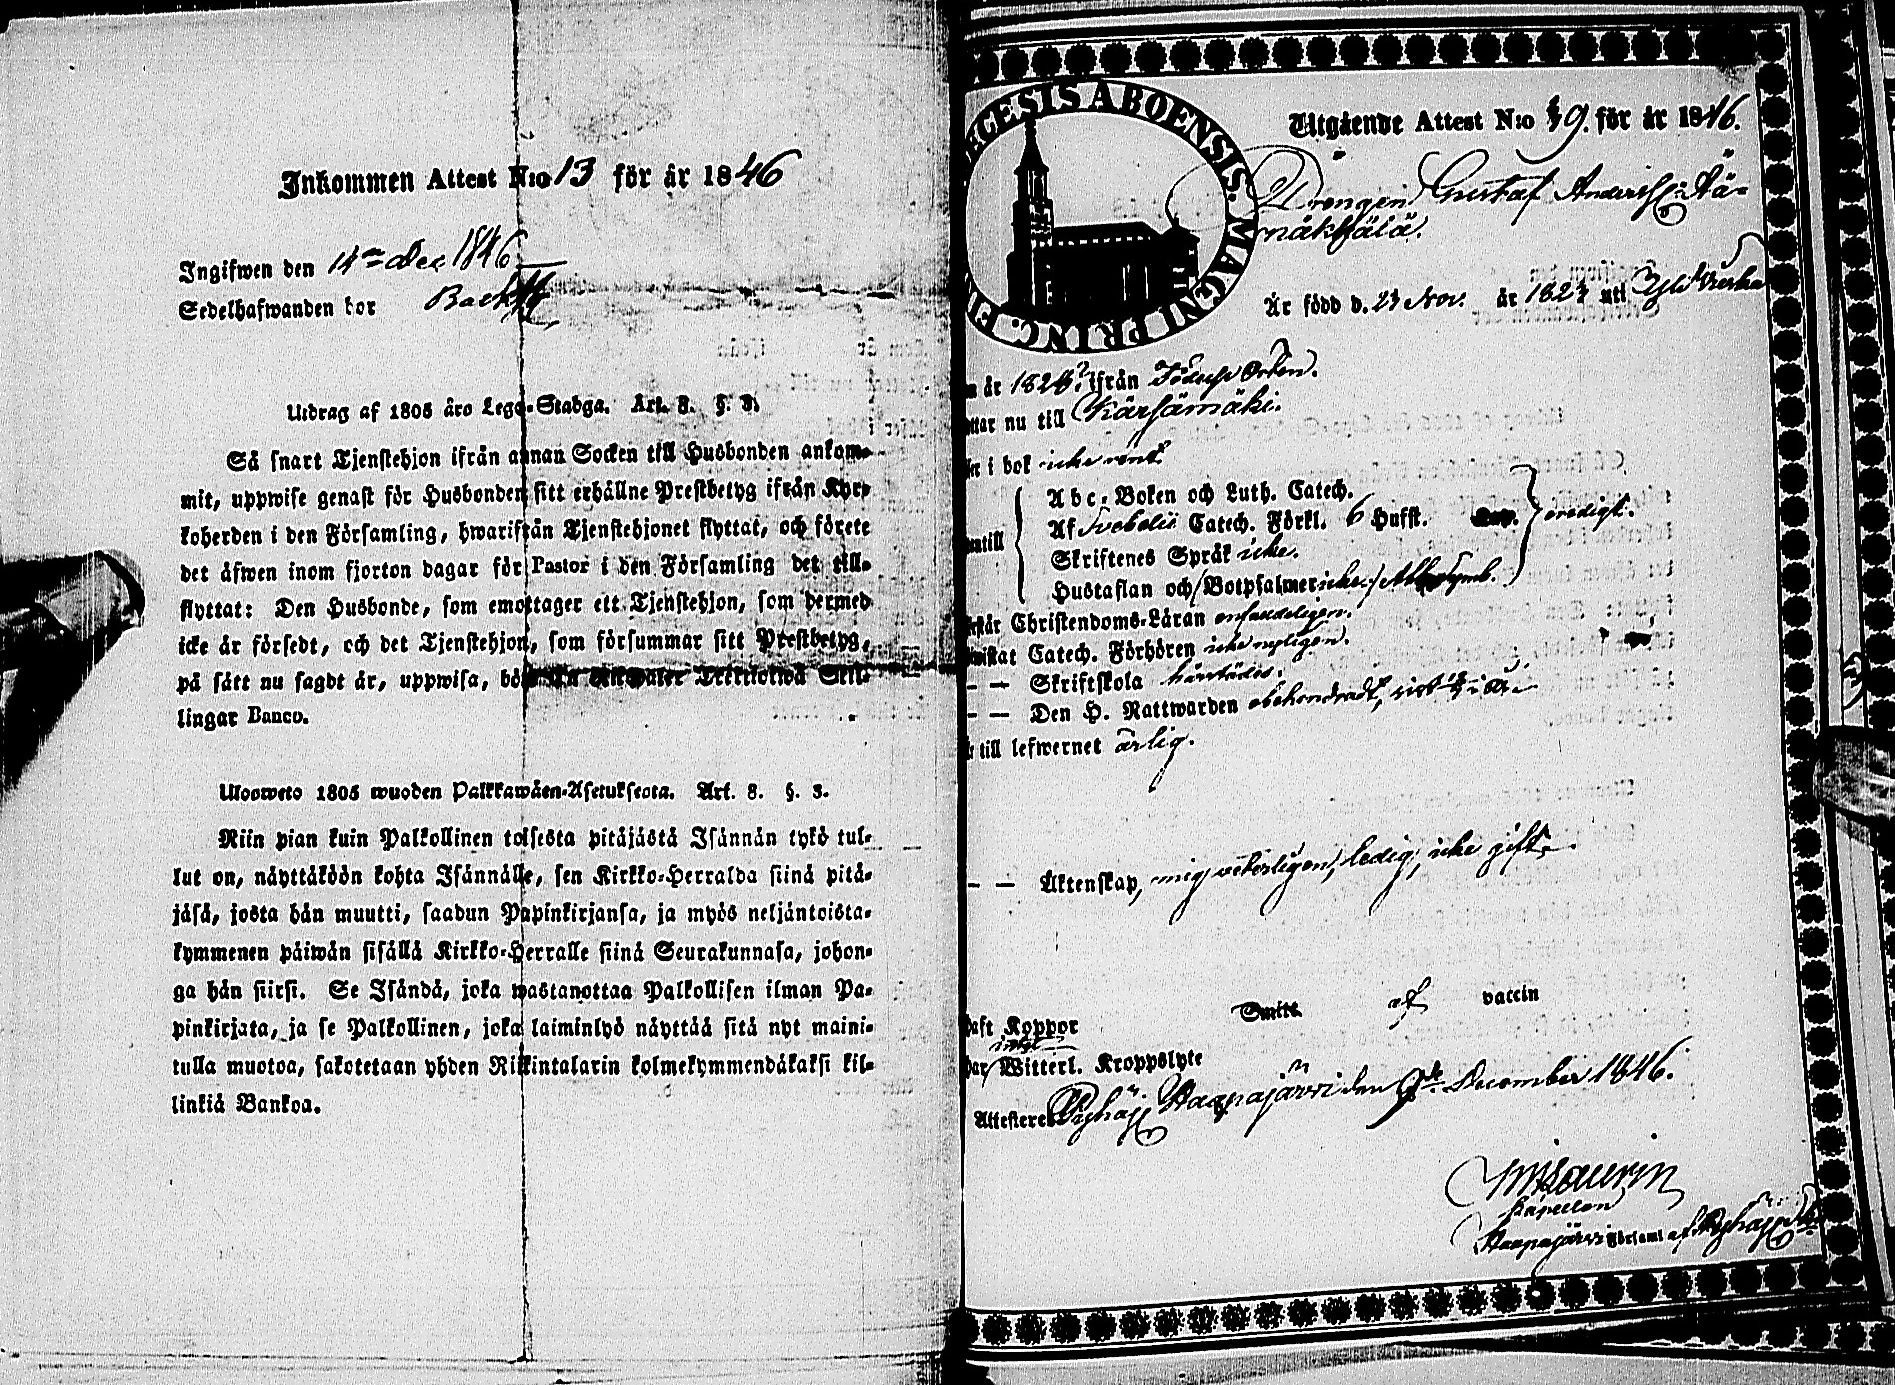 Inkommen Attest N:o 13 för år 1846
Ingifwen den 14de Dec 1846
Sedelhafwanden bor
Utdrag af 1805 års Lego-Stadga. Art. 8. §. 3.
Så snart Tjenstehjon ifrån annan Socken till Husbonden ankom-
mit, uppwise genast för Husbonden sitt erhållne Prestbetyg ifrån Kyr-
koherden i den Församling, hwarifrån Tjenstehjonet flyttat, och förete
det äfwen inom fjorton dagar för Pastor i den Församling det till-
flyttat: Den Husbonde, som emottager ett Tjenstehjon, som dermed
icke är försedt, och det Tjenstehjon, som försummar sitt Prestbetyg,
på sätt nu sagdt är, uppwisa, böte En Riksdaler Trettiotwå Skil-
lingar Banco.
Ulosweto 1805 wuoden Palkkawäen-Asetuksesta. Art. 8. §. 3.
Niin pian kuin Palkollinen toisesta pitäjästä Isännän tykö tul-
lut on, näyttäköön kohta Isännälle, sen Kirkko-Herralda siinä pitä-
jäsä, josta hän muutti, saadun Papinkirjansa, ja myös neljäntoista-
kymmenen päiwän sisällä Kirkko-Herralle siinä Seurakunnasa, johon-
ga hän siirsi. Se Isändä, joka wastanottaa Palkollisen ilman Pa-
pinkirjata, ja se Palkollinen, joka laiminlyö näyttää sitä nyt maini-
tulla muotoa, sakotetaan yhden Riikintalarin kolmekymmendäkaksi kil-
linkiä Bankoa.
ECESIS ABOENSIS. MAGNI PRINC. FI
Utgående Attest N:o 39. för år 1846.
Drengen Gustaf Anderss: Rä-
näkkälä.
Är född d. 23 Nov. år 1823 uti
n år 1824? ifrån födelse Orten.
ttar nu till Kärsämäki.
er i bok icke rent
mtill
Abc-Boken och Luth. Catech.
Af Svebelii Catech. Förkl. 6 Hufst.
Skriftenes Språk icke.
Hustaflan och Botpsalmer icke, Ath. Symb.
oredigt.
står Christendoms-Läran enfaldeligen.
wistat Catech. Förhören icke nyligen.
— — Skriftskola härstädes.
— — Den H. Nattwarden obehindradt, sist
till lefwernet ärlig.
— — Äktenskap, mig veterligen, ledig, icke gift.
aft Koppor Smitt af vaccin
intet
har Witterl. Kroppslyte
Attesteres Pyhäj: Haapajärvi den 9de December 1846.
Kapellan
Haapajärvi Församl af Pyhäj: